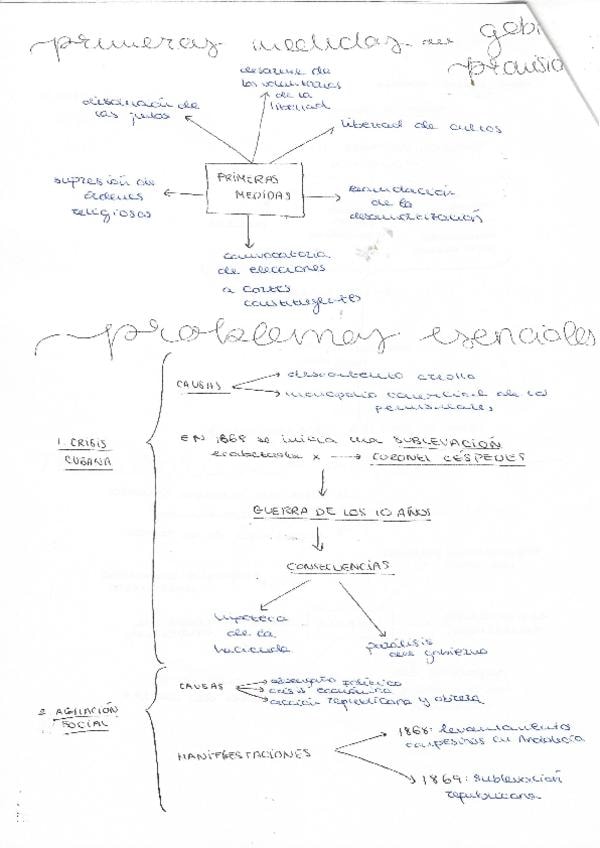 primeras medidas del gobi
provisio
desarme de
los voluntarios
de la
libertad
disolución de
las juntas
libertad de cultos
PRIMERAS
MEDIDAS
supresión de
órdenes
religiosas
reanudación
de la
desamortización
convocatoria
de elecciones
a cortes
constituyentes
problemas esenciales
1. CRISIS
CUBANA
CAUSAS
descontento criollo
monopolio comercial de los
peninsulares
EN 1868 se inicia una SUBLEVACIÓN
encabezada x → CORONEL CÉSPEDES
GUERRA DE LOS 10 AÑOS
CONSECUENCIAS
hipoteca
de la
hacienda
parálisis
del gobierno
2. AGITACIÓN
SOCIAL
CAUSAS
político
crisis económica
acción republicana y obrera
MANIFESTACIONES
1868: levantamientos
campesinos en Andalucía
1869: sublevación
republicana